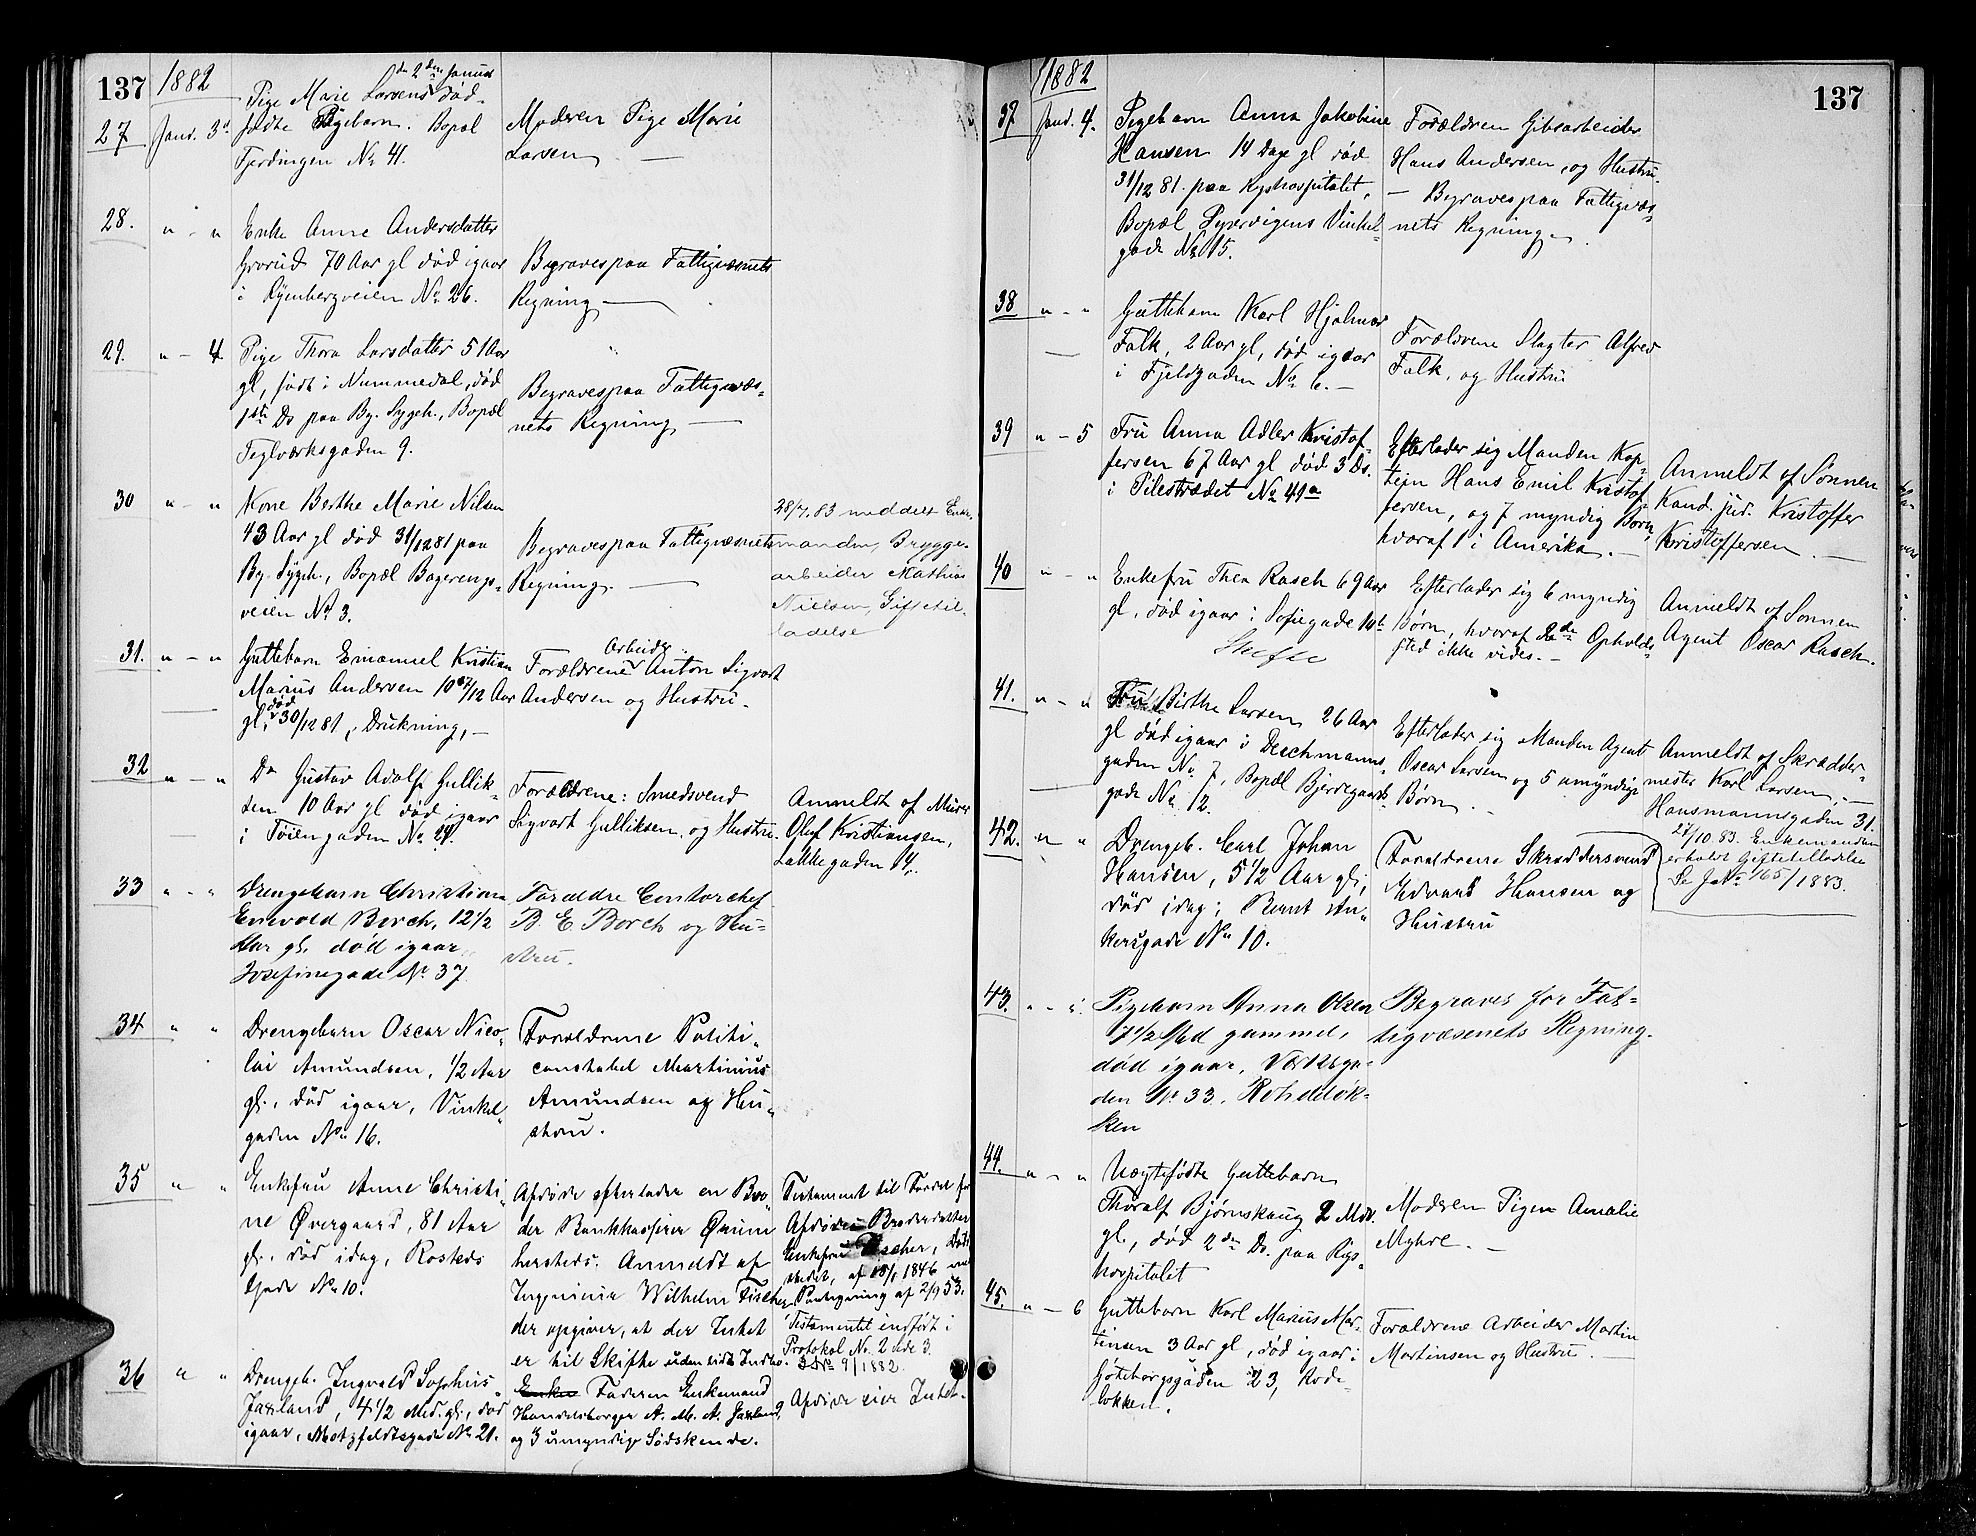 137
1882
den 2den Januar
Pige Marie Larsens død-
27 Janr. 3d. fødte Pigebarn. Bopæl
Fjerdingen No 41.
Moderen Pige Marie
Larsen —
28. " - " Enke Anne Andersdatter
Grorud 70 Aar gl død igaar
i Ryenbergveien No 26.
Begraves paa Fattigvæsnets
Regning —
29. " - 4. Pige Thora Larsdatter 51 Aar
gl, født i Nummedal, død
1ste Ds paa By. Sygeh., Bopæl
Teglværksgaden 9.
Begraves paa Fattigvæs-
nets Regning —
30 " - " Kone Berthe Marie Nilsen
43 Aar gl død 31/12 81 paa
By. Sygeh., Bopæl
veien No 3.
Begraves paa Fattigvæsnets
Regning —
28/7.83 meddelt Enke-
manden, Brygge-
arbeider Mathias
Nielsen, Giftetil-
ladelse
31. " - " Guttebarn Emanuel Kristian
Marius Andersen 10 7/12 Aar
gl, død 30/12 81, Drukning, —
Arbeider
Forældrene Anton Sigvart
Andersen og Hustru.
32 " - " Do Gustav Adolf Gullik-
sen 10 Aar gl død igaar
i Tøiengaden No 29.
Forældrene: Smedsvend
Sigvart Gulliksen, og Hustru.
Anmeldt af Murer
Oluf Kristiansen,
Lakkegaden 14.
33 " - " Drengebarn Christian
Enwold Borch, 12 1/2
Aar gl. død igaar
Josefinegade No 37
Forældre Contorchef
B. E. Borch og Hu-
stru.
34 " " Drengebarn Oscar Nico-
lai Amundsen, 1/2 Aar
gl., død igaar, Vinkel-
gaden No 16.
Forældrene Politi-
constabel Martinius
Amundsen og Hu-
stru.
35 " " Enkefru Anne Christi-
ne Overgaard, 81 Aar
gl., død idag, Rosteds
Gade No 10.
Afdøde efterlader en Bro-
der Bankkasserer
Anmeldt af
Ingeniør Wilhelm Fischer
der opgiver, at der Intet
er til Skifte uden sidt Indbo.
Testament til Fordel for
Afdødes Broderdatter
Enkefru Fischer,
af 18/1 1846
Paategning af 2/9 53.
Testamentet indført i
Protokol No. 2 Side 3.
9/1882.
36 " " Drengeb. Ingvald Sophus
Jaxland, 4 1/2 Md. gl., død
igaar, Motzfeldtsgade No 21.
Enke Faderen Enkemand
Handelsborger A. M. A. Jaxland,
og 3 umyndige Sødskende.
Afdøde eier Intet.
137
1882
37 Janr. 4. Pigebarn Anna Jakobine
Hansen 14 Dage gl død
31/12 81. paa Rigshospitalet,
Bopæl Pipervigens Vinkel-
gade No 15.
Forældren Gibsarbeider
Hans Andersen, og Hustru.
— Begraves paa Fattigvæs-
nets Regning.
38 " - " Guttebarn Karl Hjalmar
Falk, 2 Aar gl, død igaar
i Fjeldgaden No 6. —
Forældrene Slagter Alfred
Falk, og Hustru
39 " - 5 Fru Anna Adler Kristof-
fersen 67 Aar gl død 3 Ds.
i Pilestrædet No 41a
Efterlader sig Manden Kap-
tein Hans Emil Kristof-
fersen, og 7 myndig Børn,
hvoraf 1 i Amerika. —
Anmeldt af Sønnen
Kand. jur. Kristoffer
Kristoffersen. —
40 " - " Enkefru Thea Rasch 69 Aar
gl., død igaar i Sofiegade 10b
Skifte
Efterlader sig 6 myndig
Børn, hvoraf 2de Opholds-
sted ikke vides. —
Anmeldt af Sønnen
Agent Oscar Rasch.
41. " - " Fru Birthe Larsen, 26 Aar
gl død igaar i Deichmanns-
gaden No 7, Bopæl Bjerregaards-
gade No 12.
Efterlader sig Manden Agent
Oscar Larsen og 5 umyndige
Børn.
Anmeldt af Skrædder-
mester Karl Larsen, —
Hausmannsgaden 31.
27/10.83. Enkemanden
erholdt Giftetilladelse
Se J.No 165/1883.
42. " " Drengeb. Carl Johan
Hansen, 5 1/2 Aar gl.,
død idag; Bernt An-
kersgade No 10.
Forældrene Skræddersvend
Edvard Hansen og
Hustru
43. " - " Pigebarn Anna Olsen
7 1/2 Md gammel,
død igaar, Værksga-
den No 33, Rodeløk-
ken
Begraves for Fat-
tigvæsenets Regning.
44. " - " Uægtefødte Guttebarn
Thoralf Bjørnskaug 2 Mdr.
gl., død 2den Ds. paa Rigs-
hospitalet
Moderen Pigen Amalie
Myhre. —
45. " - 6 Guttebarn Karl Marius Mar-
tinsen 3 Aar gl, død igaar i
Gøteborgsgaden 23, Rode-
løkken.
Forældrene Arbeider Martin
Martinsen og Hustru. —